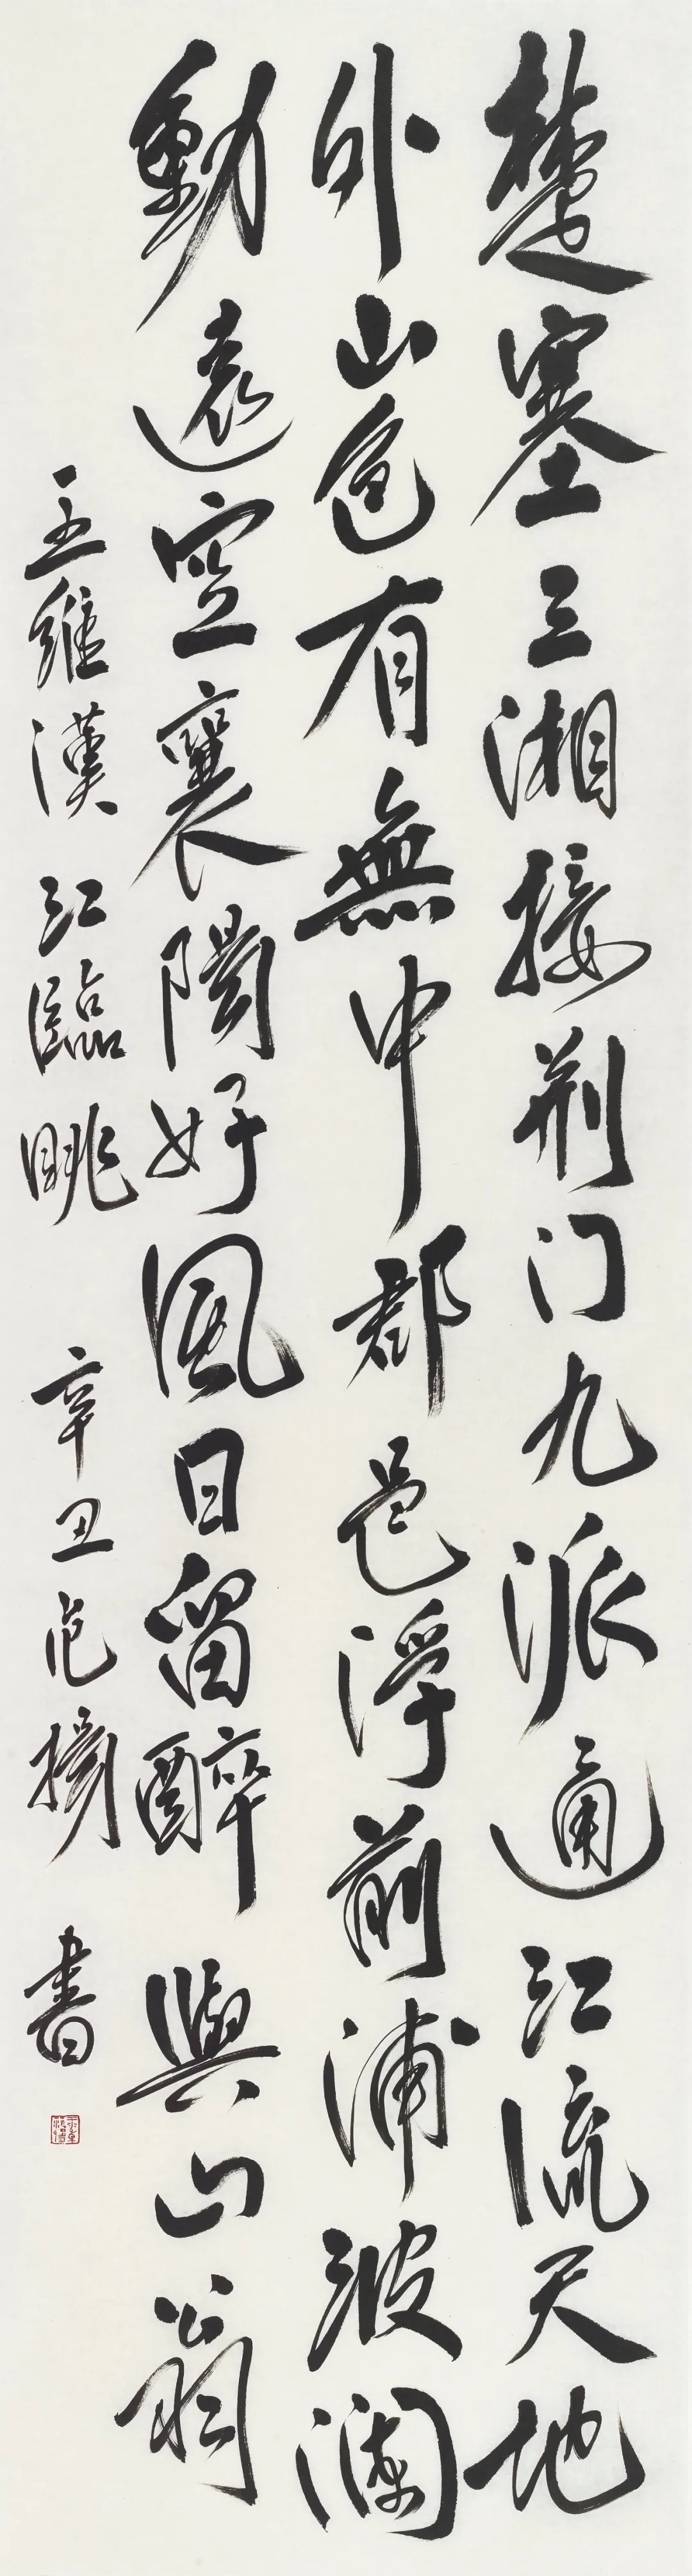 楚塞三湘接荆门九派通江流天地
外山色有無中郡邑浮前浦波瀾
動遠空襄陽好風日留醉與山翁
王維漢江臨眺 辛丑 危揚書